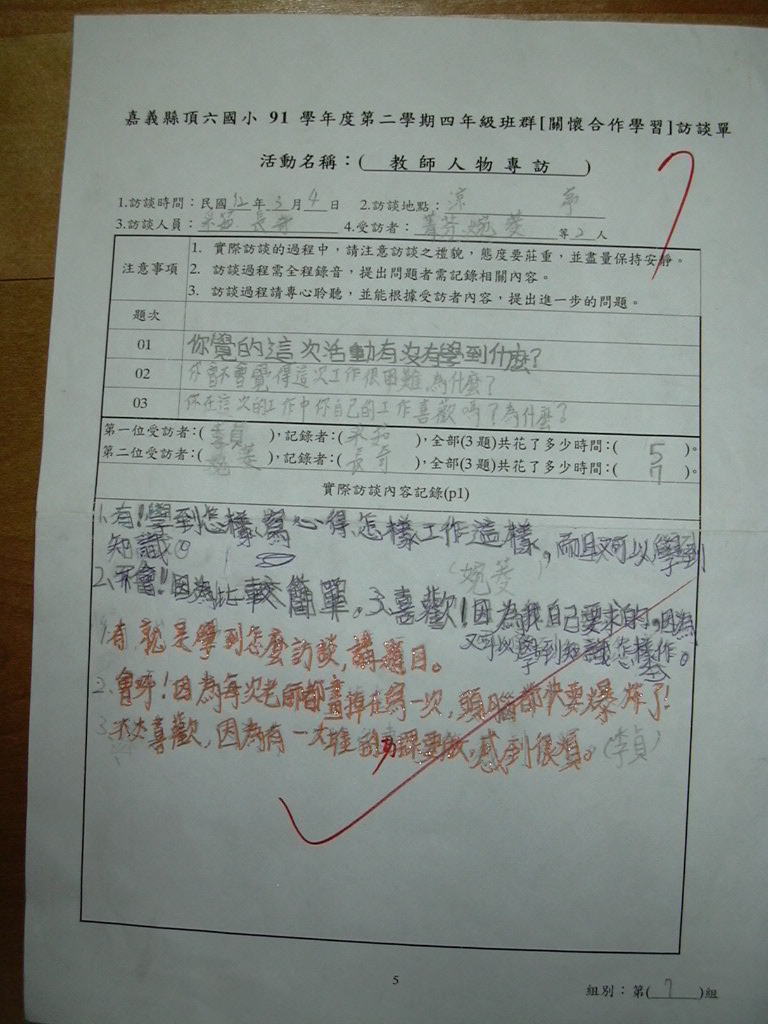 嘉義縣頂六國小 91 學年度第二學期四年級班群[關懷合作學習]訪談單
活動名稱：( 教師人物專訪 )
1.訪談時間：民國 92 年 3 月 4 日 2.訪談地點：涼 亭
3.訪談人員： 4.受訪者：菁芬、婉菱 等 2 人
注意事項
1. 實際訪談的過程中，請注意訪談之禮貌，態度要莊重，並盡量保持安靜。
2. 訪談過程需全程錄音，提出問題者需記錄相關內容。
3. 訪談過程請專心聆聽，並能根據受訪者內容，提出進一步的問題。
題次
01 你覺的這次活動有沒有學到什麼？
02 你會不會覺得這次工作很困難，為什麼？
03 你在這次的工作中你自己的工作喜歡嗎？為什麼？
第一位受訪者：( 李貞 )，記錄者：( )，全部(3題)共花了多少時間：( 5 )。
第二位受訪者：( 婉菱 )，記錄者：( )，全部(3題)共花了多少時間：( 7 )。
實際訪談內容記錄(p1)
1.有！學到怎樣寫心得、怎樣工作這樣，而且又可以學到
知識。
(婉菱)
2.不會！因為比較簡單。3.喜歡！因為我自己要求的，因為
又可以學到知識怎樣作。
1.有就是學到怎麼訪談，講題目。
2.會呀！因為每次老師都畫掉在寫一次，頭腦都快要爆炸了！
3.不太喜歡，因為有一大堆的功課要做，感到很煩。(李貞)
5
組別：第( 7 )組